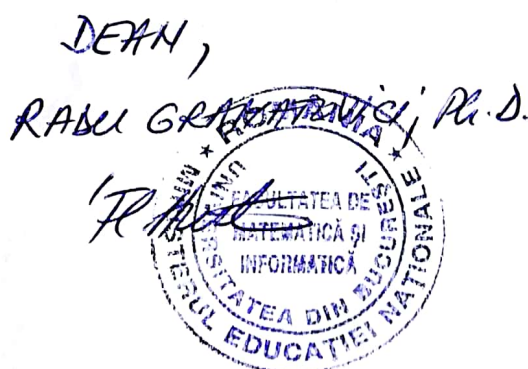 DEAN,
RADU GRAMATOVICI, Ph.D.
* ROMÂNIA *
MINISTERUL EDUCAȚIEI NAȚIONALE
UNIVERSITATEA DIN BUCUREȘTI
FACULTATEA DE
MATEMATICĂ ȘI
INFORMATICĂ